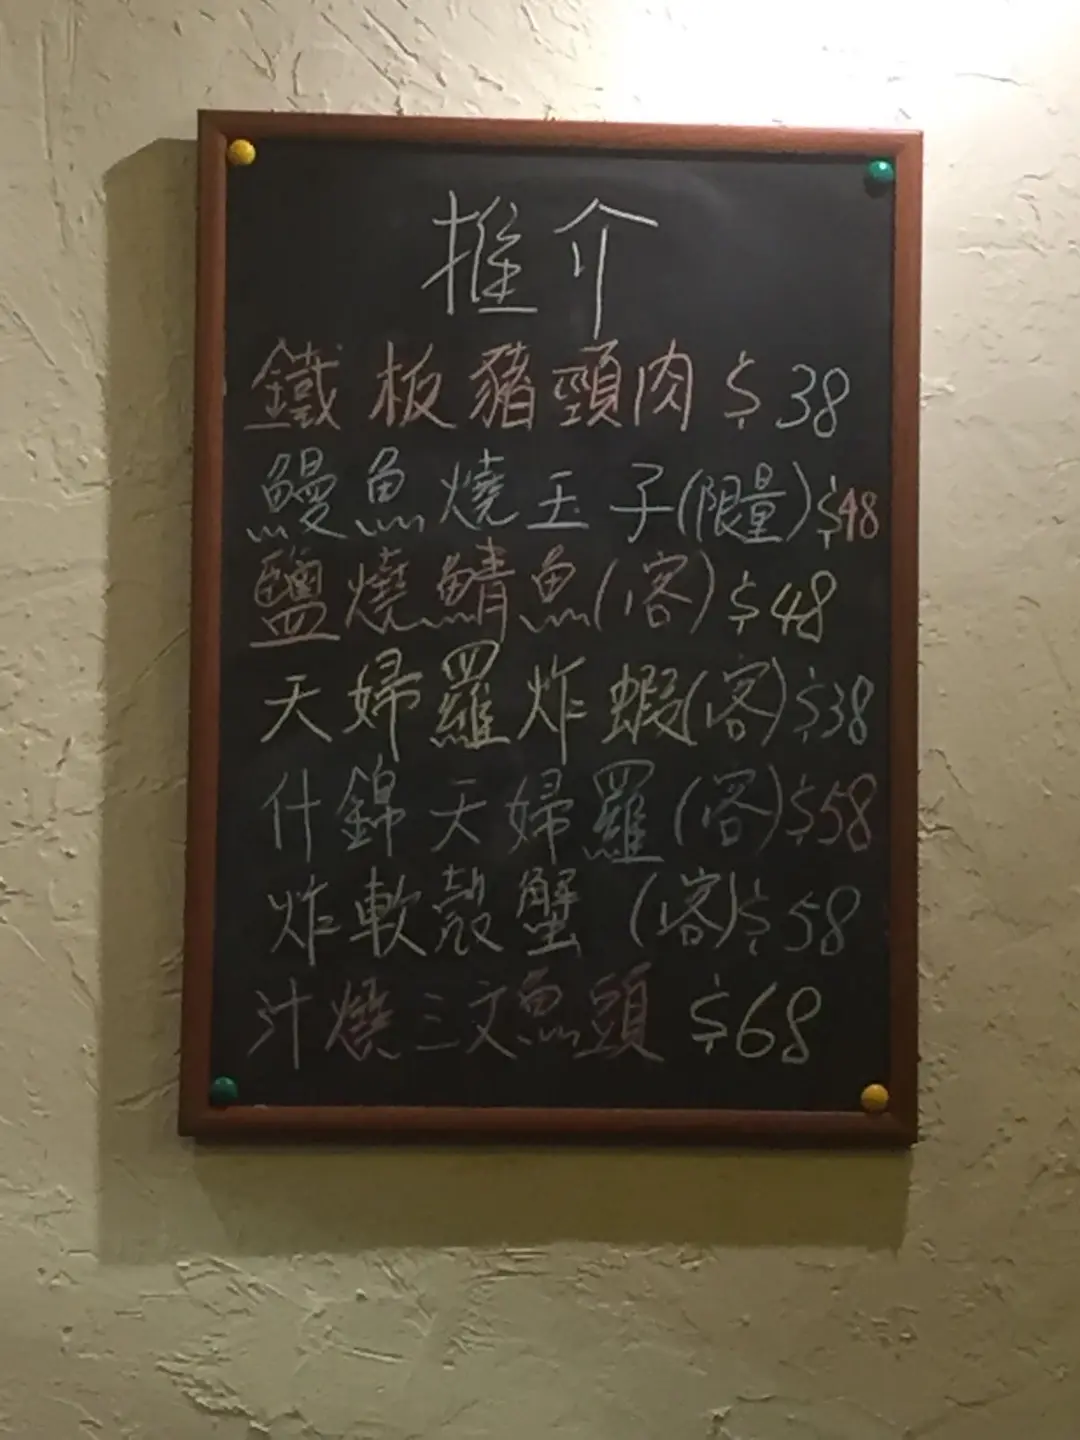 推介
鐵板豬頸肉 $38
鰻魚燒玉子(限量)$48
鹽燒鯖魚(客)$48
天婦羅炸蝦(客)$38
什錦天婦羅(客)$58
炸軟殼蟹(客)$58
汁燒三文魚頭 $68